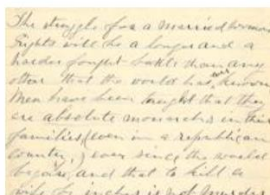 The struggle for a married woman's
Rights will be a longer and a
harder fought battle than any
other that the world has ever known.
Men have been taught that they
are absolute monarchs in their
families, (even in a republican
country,) ever since the world
began, and that to kill a
wife by inches is not murder